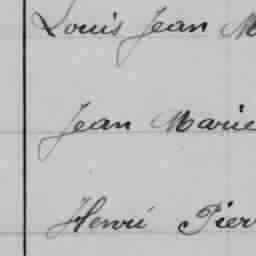 Louis Jean M
Jean Marie
Henri Pier